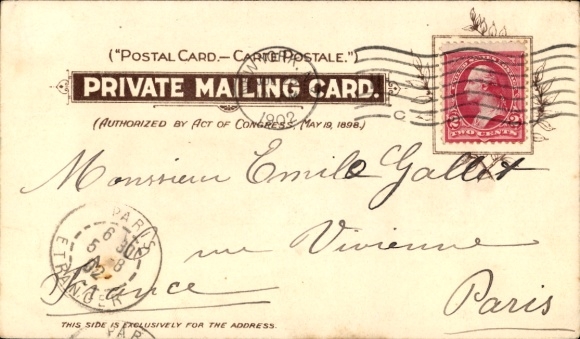 ("POSTAL CARD.—CARTE POSTALE.")
PRIVATE MAILING CARD.
(AUTHORIZED BY ACT OF CONGRESS, MAY 19, 1898.)
1902
TWO CENTS
Monsieur Emile Gallet
rue Vivienne
France
Paris
PARIS
ETRANGER
THIS SIDE IS EXCLUSIVELY FOR THE ADDRESS.
PAR